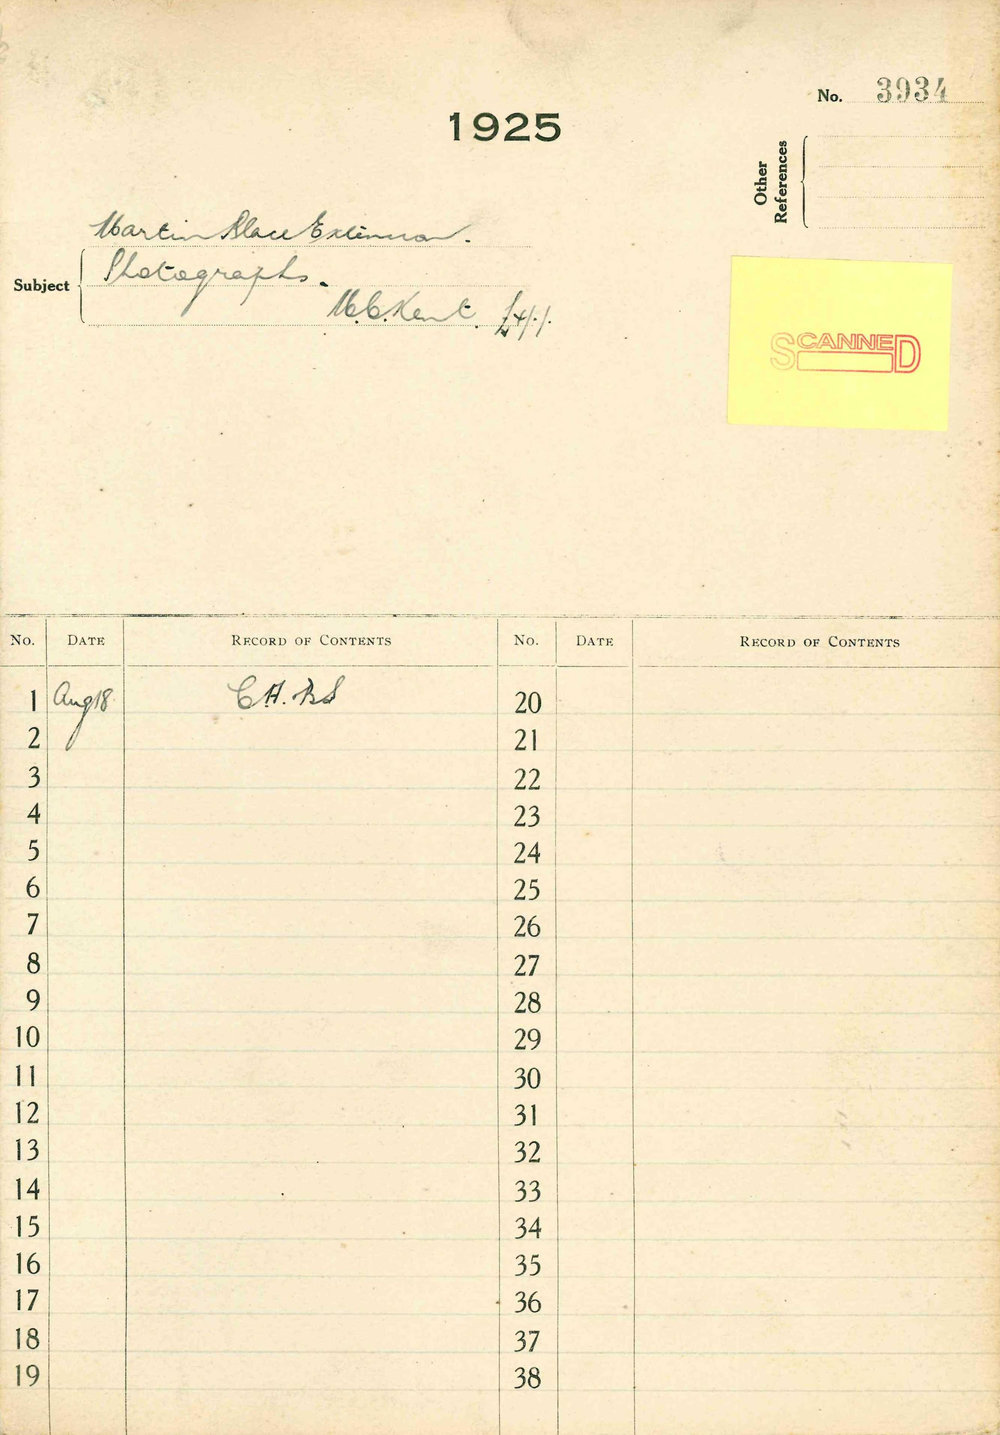 No. 3934
1925
Other
References
Martin Place Extension.
Subject
Photographs.
M.C. Kent. £4/./.
SCANNED
No. DATE RECORD OF CONTENTS No. DATE RECORD OF CONTENTS
1 Aug 18 20
2 21
3 22
4 23
5 24
6 25
7 26
8 27
9 28
10 29
11 30
12 31
13 32
14 33
15 34
16 35
17 36
18 37
19 38